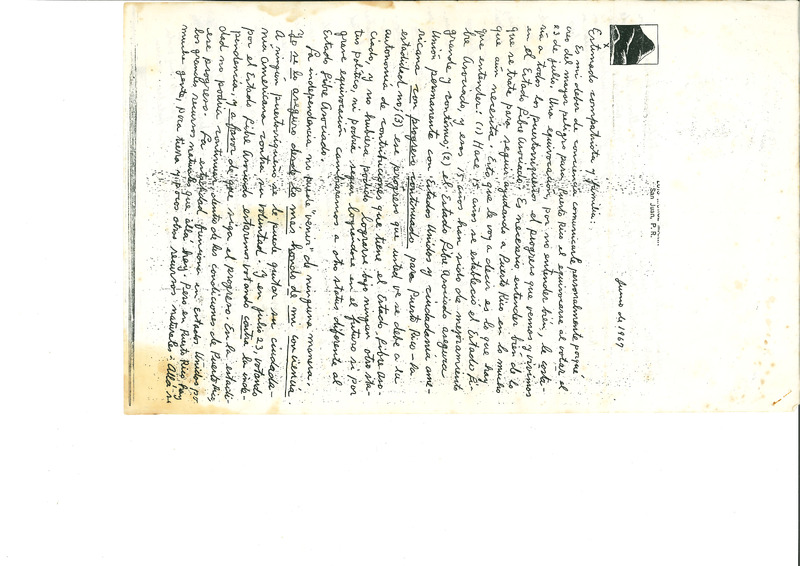 San Juan, P. R.
Junio de 1967
Estimado compatriota y familia:
Es mi deber de conciencia comunicarle personalmente porqué
creo del mayor peligro para Puerto Rico el equivocarse al votar el
23 de julio. Una equivocación, por no entender bien, le costa-
ría a todos los puertorriqueños el progreso que vemos y vivimos
en el Estado Libre Asociado. Es necesario entender bien de lo
que se trata para seguir ayudando a Puerto Rico en lo mucho
que aún necesita. Esto que le voy a decir es lo que hay
que entender: (1) Hace 15 años se estableció el Estado Li-
bre Asociado, y esos 15 años han sido de mejoramiento
grande y contínuo; (2) el Estado Libre Asociado asegura
unión permanente con Estados Unidos y ciudadanía ame-
ricana con progreso continuado para Puerto Rico - la
estadidad no; (3) ese progreso que usted ve se debe a la
autonomía de contribuciones que tiene el Estado Libre Aso-
ciado, y no hubiera podido lograrse bajo ningún otro sta-
tus político, ni podría seguir lográndose en el futuro si por
grave equivocación cambiáramos a otro status diferente al
Estado Libre Asociado.
La independencia no puede "venir" de ninguna manera.
Yo se lo aseguro desde lo más hondo de mi conciencia.
A ningún puertorriqueño se le puede quitar su ciudada-
nía americana contra su voluntad. Y en julio 23, votando
por el Estado Libre Asociado estaremos votando contra la inde-
pendencia, y a favor de que siga el progreso. En la estadi-
dad no podría continuar, dentro de las condiciones de Puerto Rico,
ese progreso. La estadidad funciona en Estados Unidos por
los grandes recursos naturales que allá hay. Pero en Puerto Rico hay
mucha gente, poca tierra y pocos otros recursos naturales. Allá si